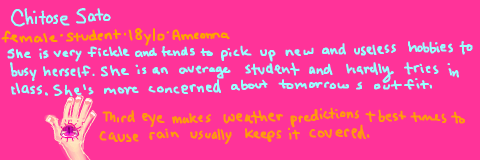 Chitose Sato
female·student·18y/o·Ameonna
She is very fickle and tends to pick up new and useless hobbies to
busy herself. She is an average student and hardly tries in
class. She's more concerned about tomorrow's outfit.
Third eye makes weather predictions + best tunes to
cause rain usually keeps it covered.